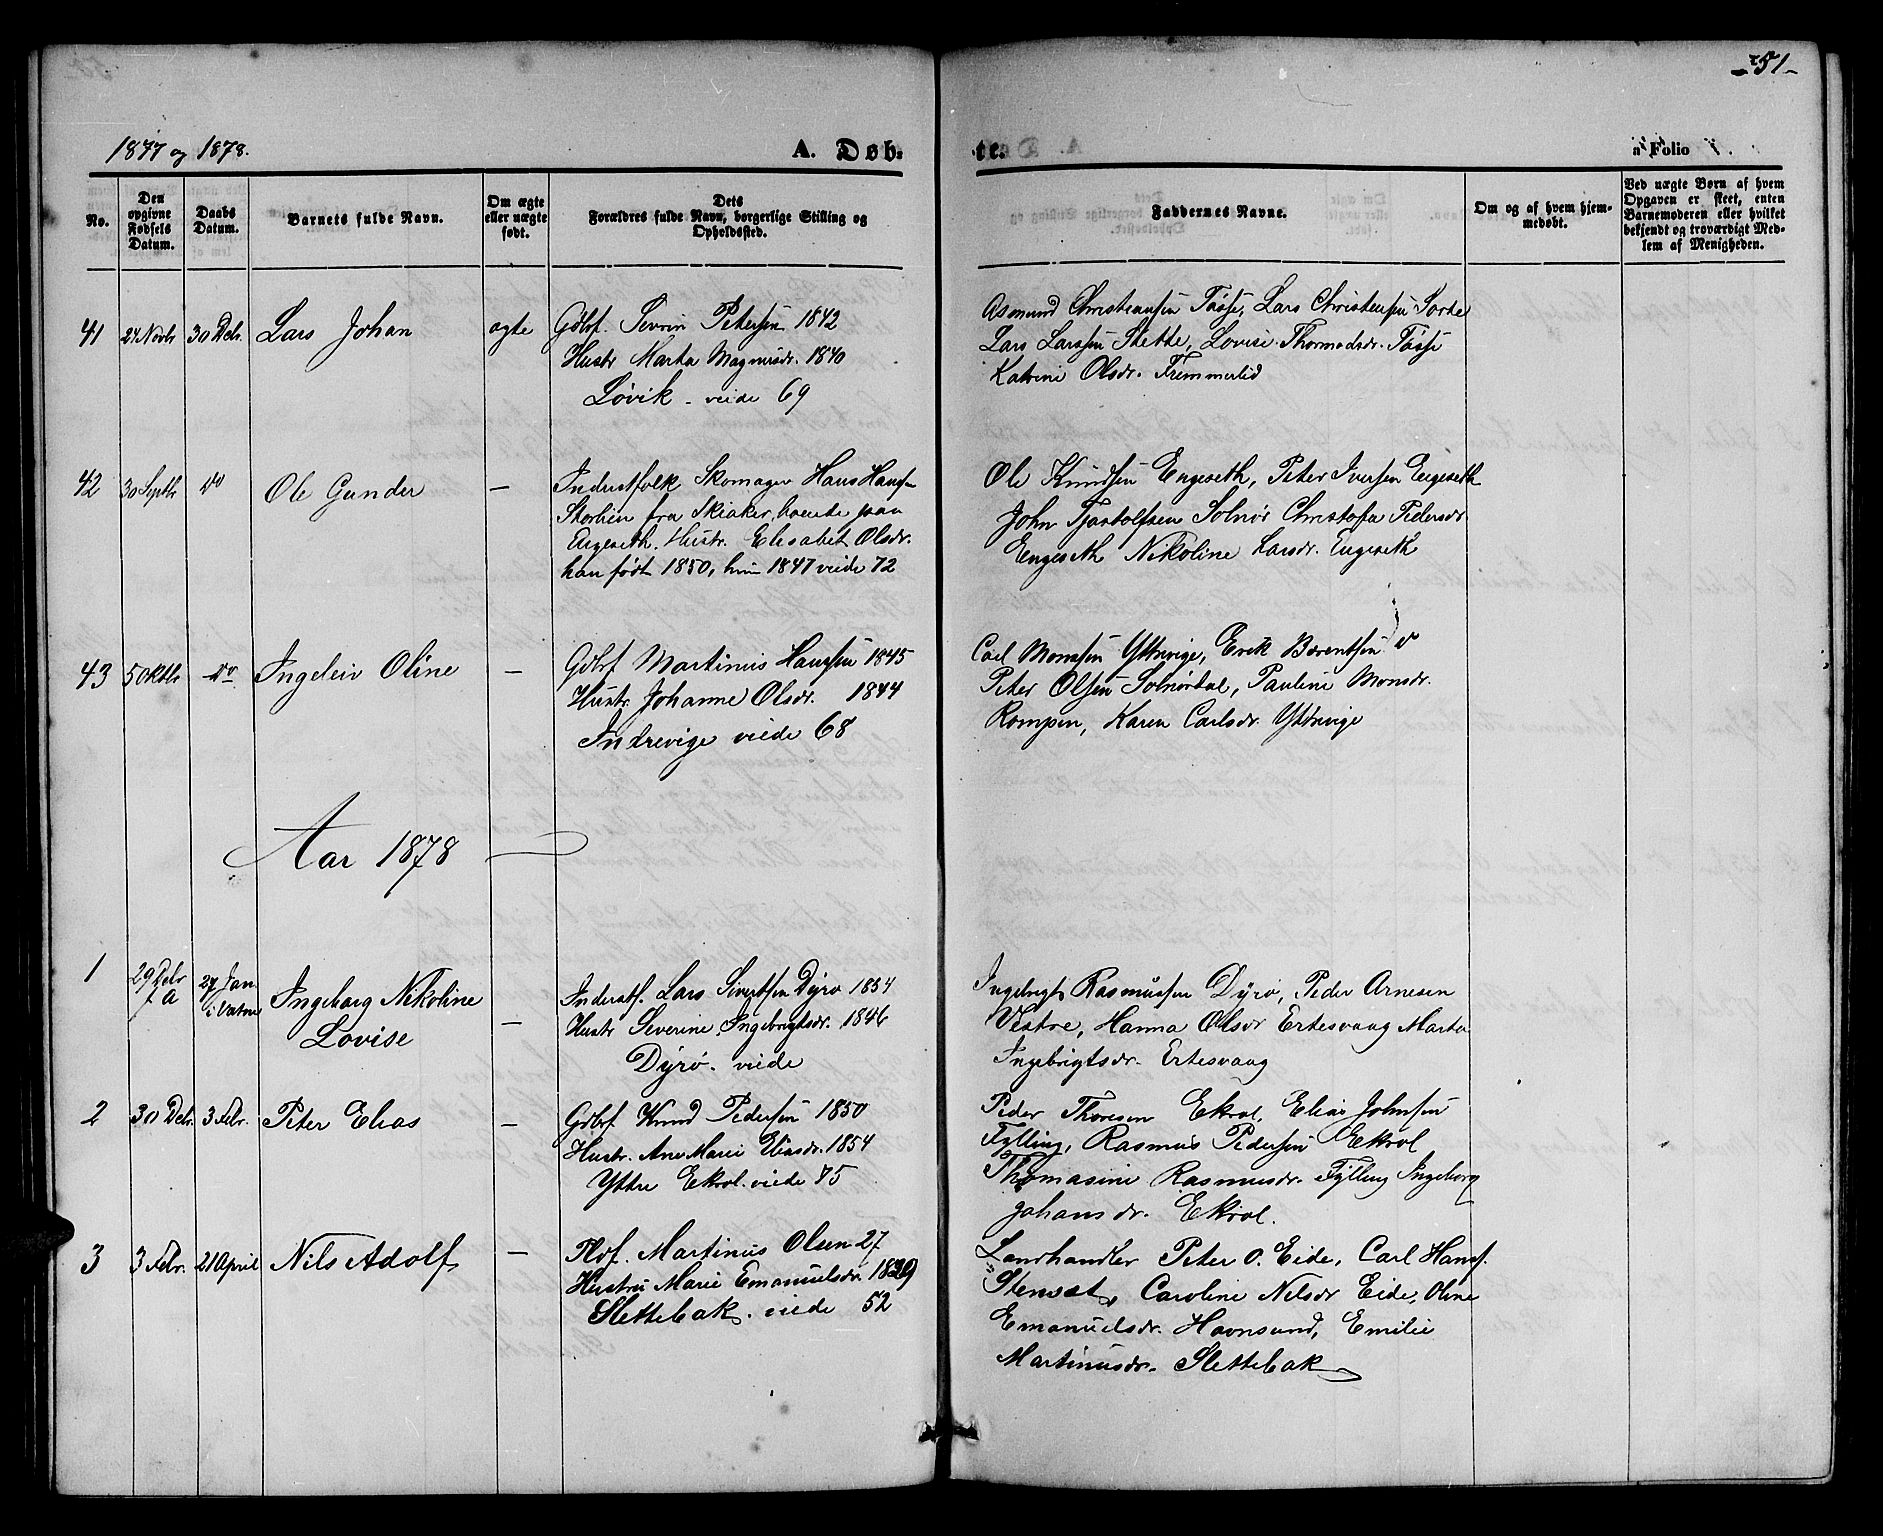 51
1877 og 1878.
A. Døb-
te.
Folio
No.
Den opgivne Fødsels Datum.
Daabs Datum.
Barnets fulde Navn.
Om ægte eller uægte født.
Dets Forældres fulde Navn, borgerlige Stilling og Opholdssted.
Faddernes Navne.
Om og af hvem hjemmedøbt.
Ved uægte Børn af hvem Opgaven er skeet, enten Barnemoderen eller hvilket bekjendt og troværdigt Medlem af Menigheden.
41 27 Novbr 30 Debr. Lars Johan ægte Gdbf. Sevrin Petersen 1842
Hustr Marta Magnusdr. 1840
Løvik - viede 69
Asmund Christensen Tøsse, Lars Christensen Sorte
Lars Larssen Slette, Lovise Thormodsdr. Tøsse
Katrine Olsdr. Fremmerlid
42 30 Septbr do Ole Gunder — Inderstfolk Skomager Hans Hans-
Storlien fra Skiaker, boende paa
Engeseth. Hustr. Elisabet Olsdr.
han født 1850, hun 1847 viede 72
Ole Knudsen Engeseth, Peter Iversen Engeseth
John Tjostolfsen Solnør Christofa Pedersdr
Engeseth Nikoline Larsdr. Engeseth
43 5 Oktbr do Ingeleiv Oline — Gdbf Martinus Hansen 1845
Hustr. Johanne Olsdr. 1844
Indrevige viede 68
Carl Monssen Yttrevige, Erik Berentsen do
Peter Olsen Solnørdal, Pauline Monsdr.
Rompen, Karen Carlsdr. Yttrevige
Aar 1878
1 29 Debr f A 27 Jan. i Vatne Ingeborg Nikoline
Lovise — Inderstf. Lars Sivertsen Dyrø 1854
Hustr Severine Ingebrigtsdr. 1846
Dyrø. viede
Ingebrigt Rasmussen Dyrø, Peder Arnesen
Vestre, Hanna Olsdr Ertesvaag Marta
Ingebrigtsdr. Ertesvaag
2 30 Debr. 3 Febr. Peter Elias — Gdbf Knud Pedersen 1850
Hustr. Ane Marie Eliasdr. 1854
Yttre Ekrol. viede 75
Peder Thoresen Ekrol, Elias Johnsen
Fylling, Rasmus Pedersen Ekrol
Thomasine Rasmusdr. Fylling Ingeborg
Johansdr. Ekrol.
3 3 Febr. 21 April Nils Adolf — Pldf. Martinus Olsen 27
Hustru Marie Emanuelsdr. 1829
Slettebak. viede 52
Landhandler Peter O. Eide, Carl Hans.
Stenvæt, Caroline Nilsdr Eide, Oline
Emanuelsdr. Havnsund, Emilie
Martinusdr. Slettebak